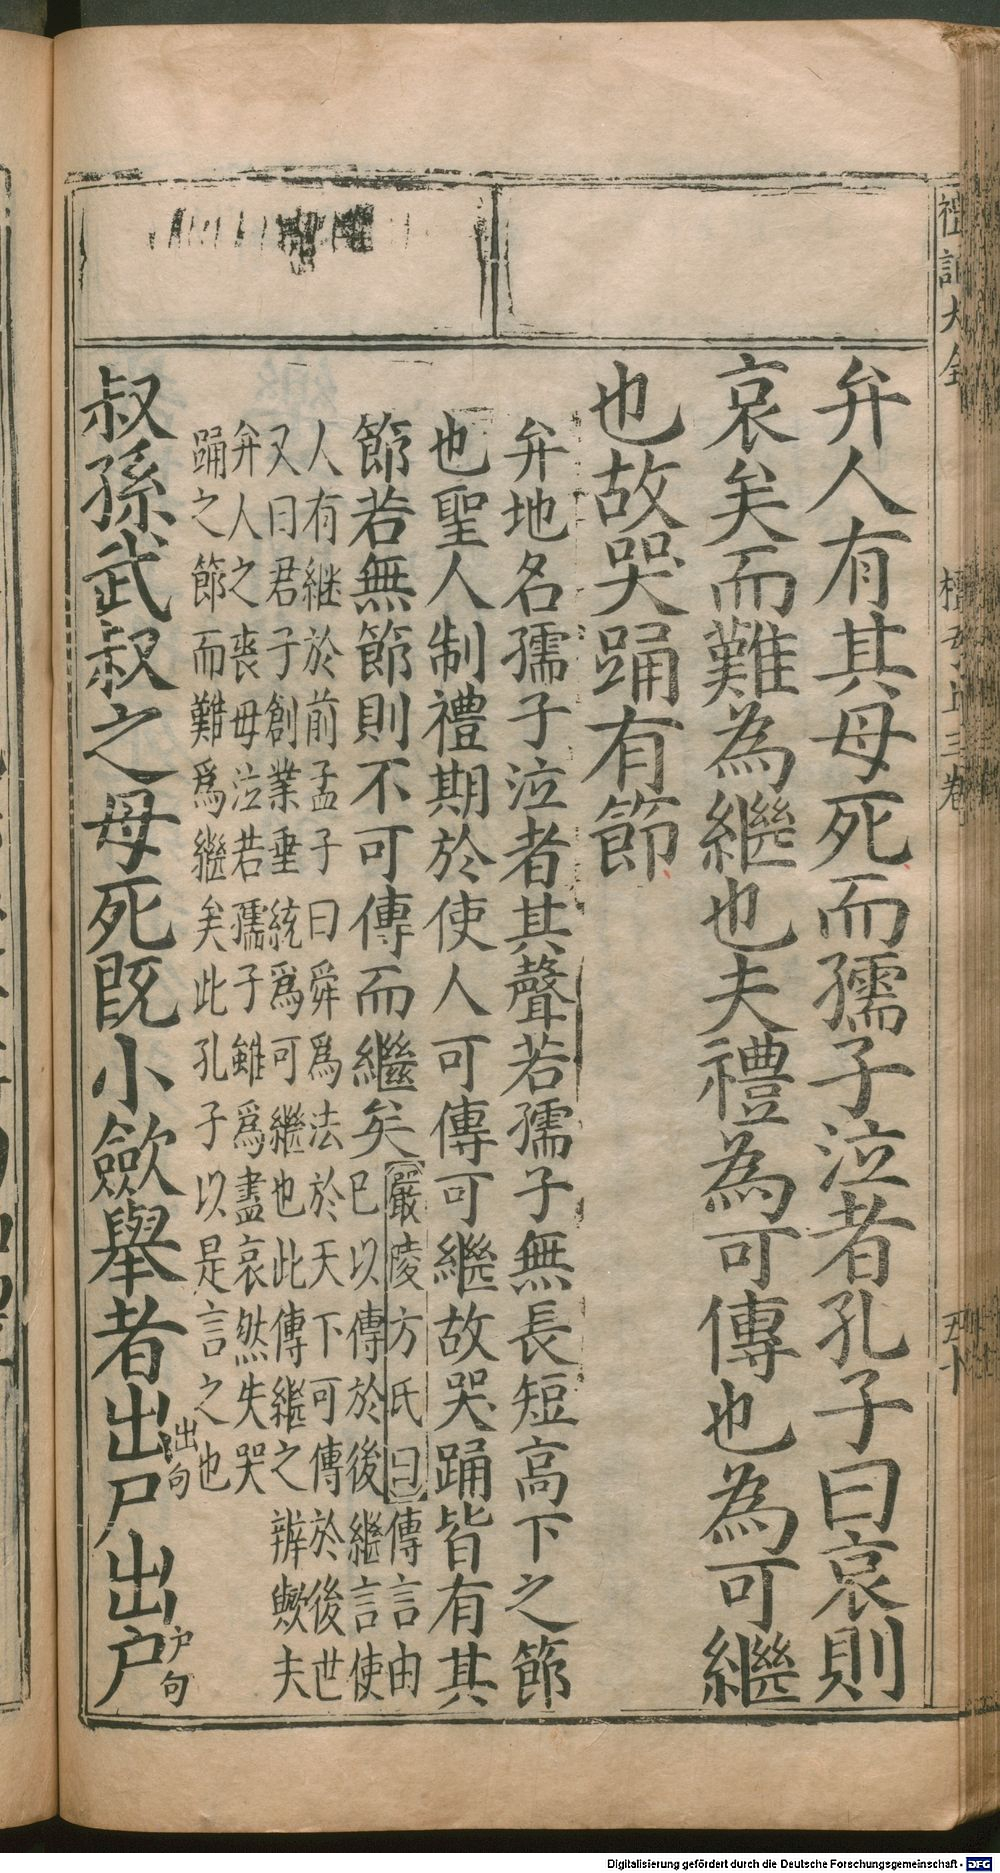 禮記大全 檀弓上三卷 五十
弁人有其母死而孺子泣者孔子曰哀則
哀矣而難為繼也夫禮為可傳也為可繼
也故哭踊有節
弁地名孺子泣者其聲若孺子無長短高下之節
也聖人制禮期於使人可傳可繼故哭踊皆有其
節若無節則不可傳而繼矣
嚴陵方氏曰傳言由
已以傳於後繼言使
人有継於前孟子曰舜爲法於天下可傳於後世
又曰君子創業垂統爲可繼也此傳繼之辨歟夫
弁人之喪母泣若孺子雖爲盡哀然失哭
踊之節而難爲繼矣此孔子以是言之也
叔孫武叔之母死既小歛舉者出出句尸出户户句
Digitalisierung gefördert durch die Deutsche Forschungsgemeinschaft - DFG